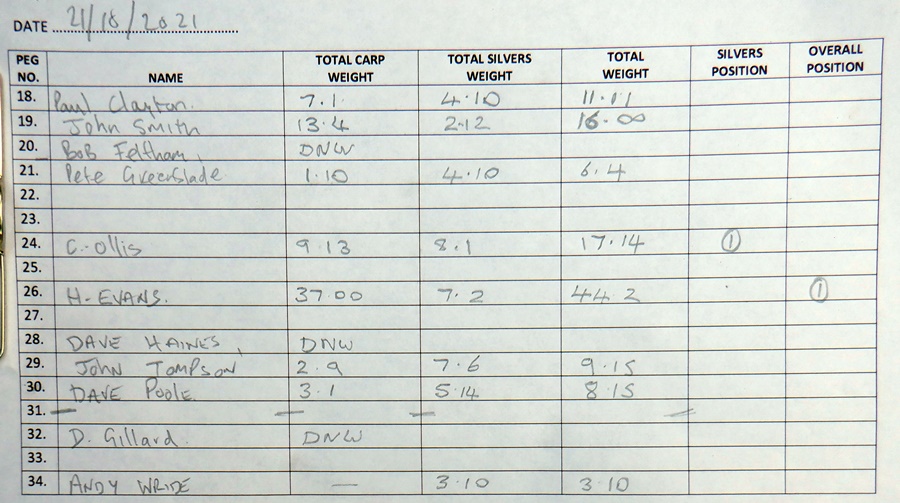 DATE 21/10/2021
PEG NO. NAME TOTAL CARP WEIGHT TOTAL SILVERS WEIGHT TOTAL WEIGHT SILVERS POSITION OVERALL POSITION
18. Paul Clayton. 7.1 4.10 11.11
19. John Smith 13.4 2.12 16.00
20. BOB Feltham, DNW
21. Pete Greenslade 1.10 4.10 6.4
22.
23.
24. C. Ollis 9.13 8.1 17.14 1
25.
26. H. EVANS. 37.00 7.2 44.2 1
27.
28. DAVE HAINES, DNW
29. JOHN TOMPSON 2.9 7.6 9.15
30. DAVE Poole 3.1 5.14 8.15
31. — — — —
32. D. Gillard. DNW
33.
34. ANDY WRIDE — 3.10 3.10